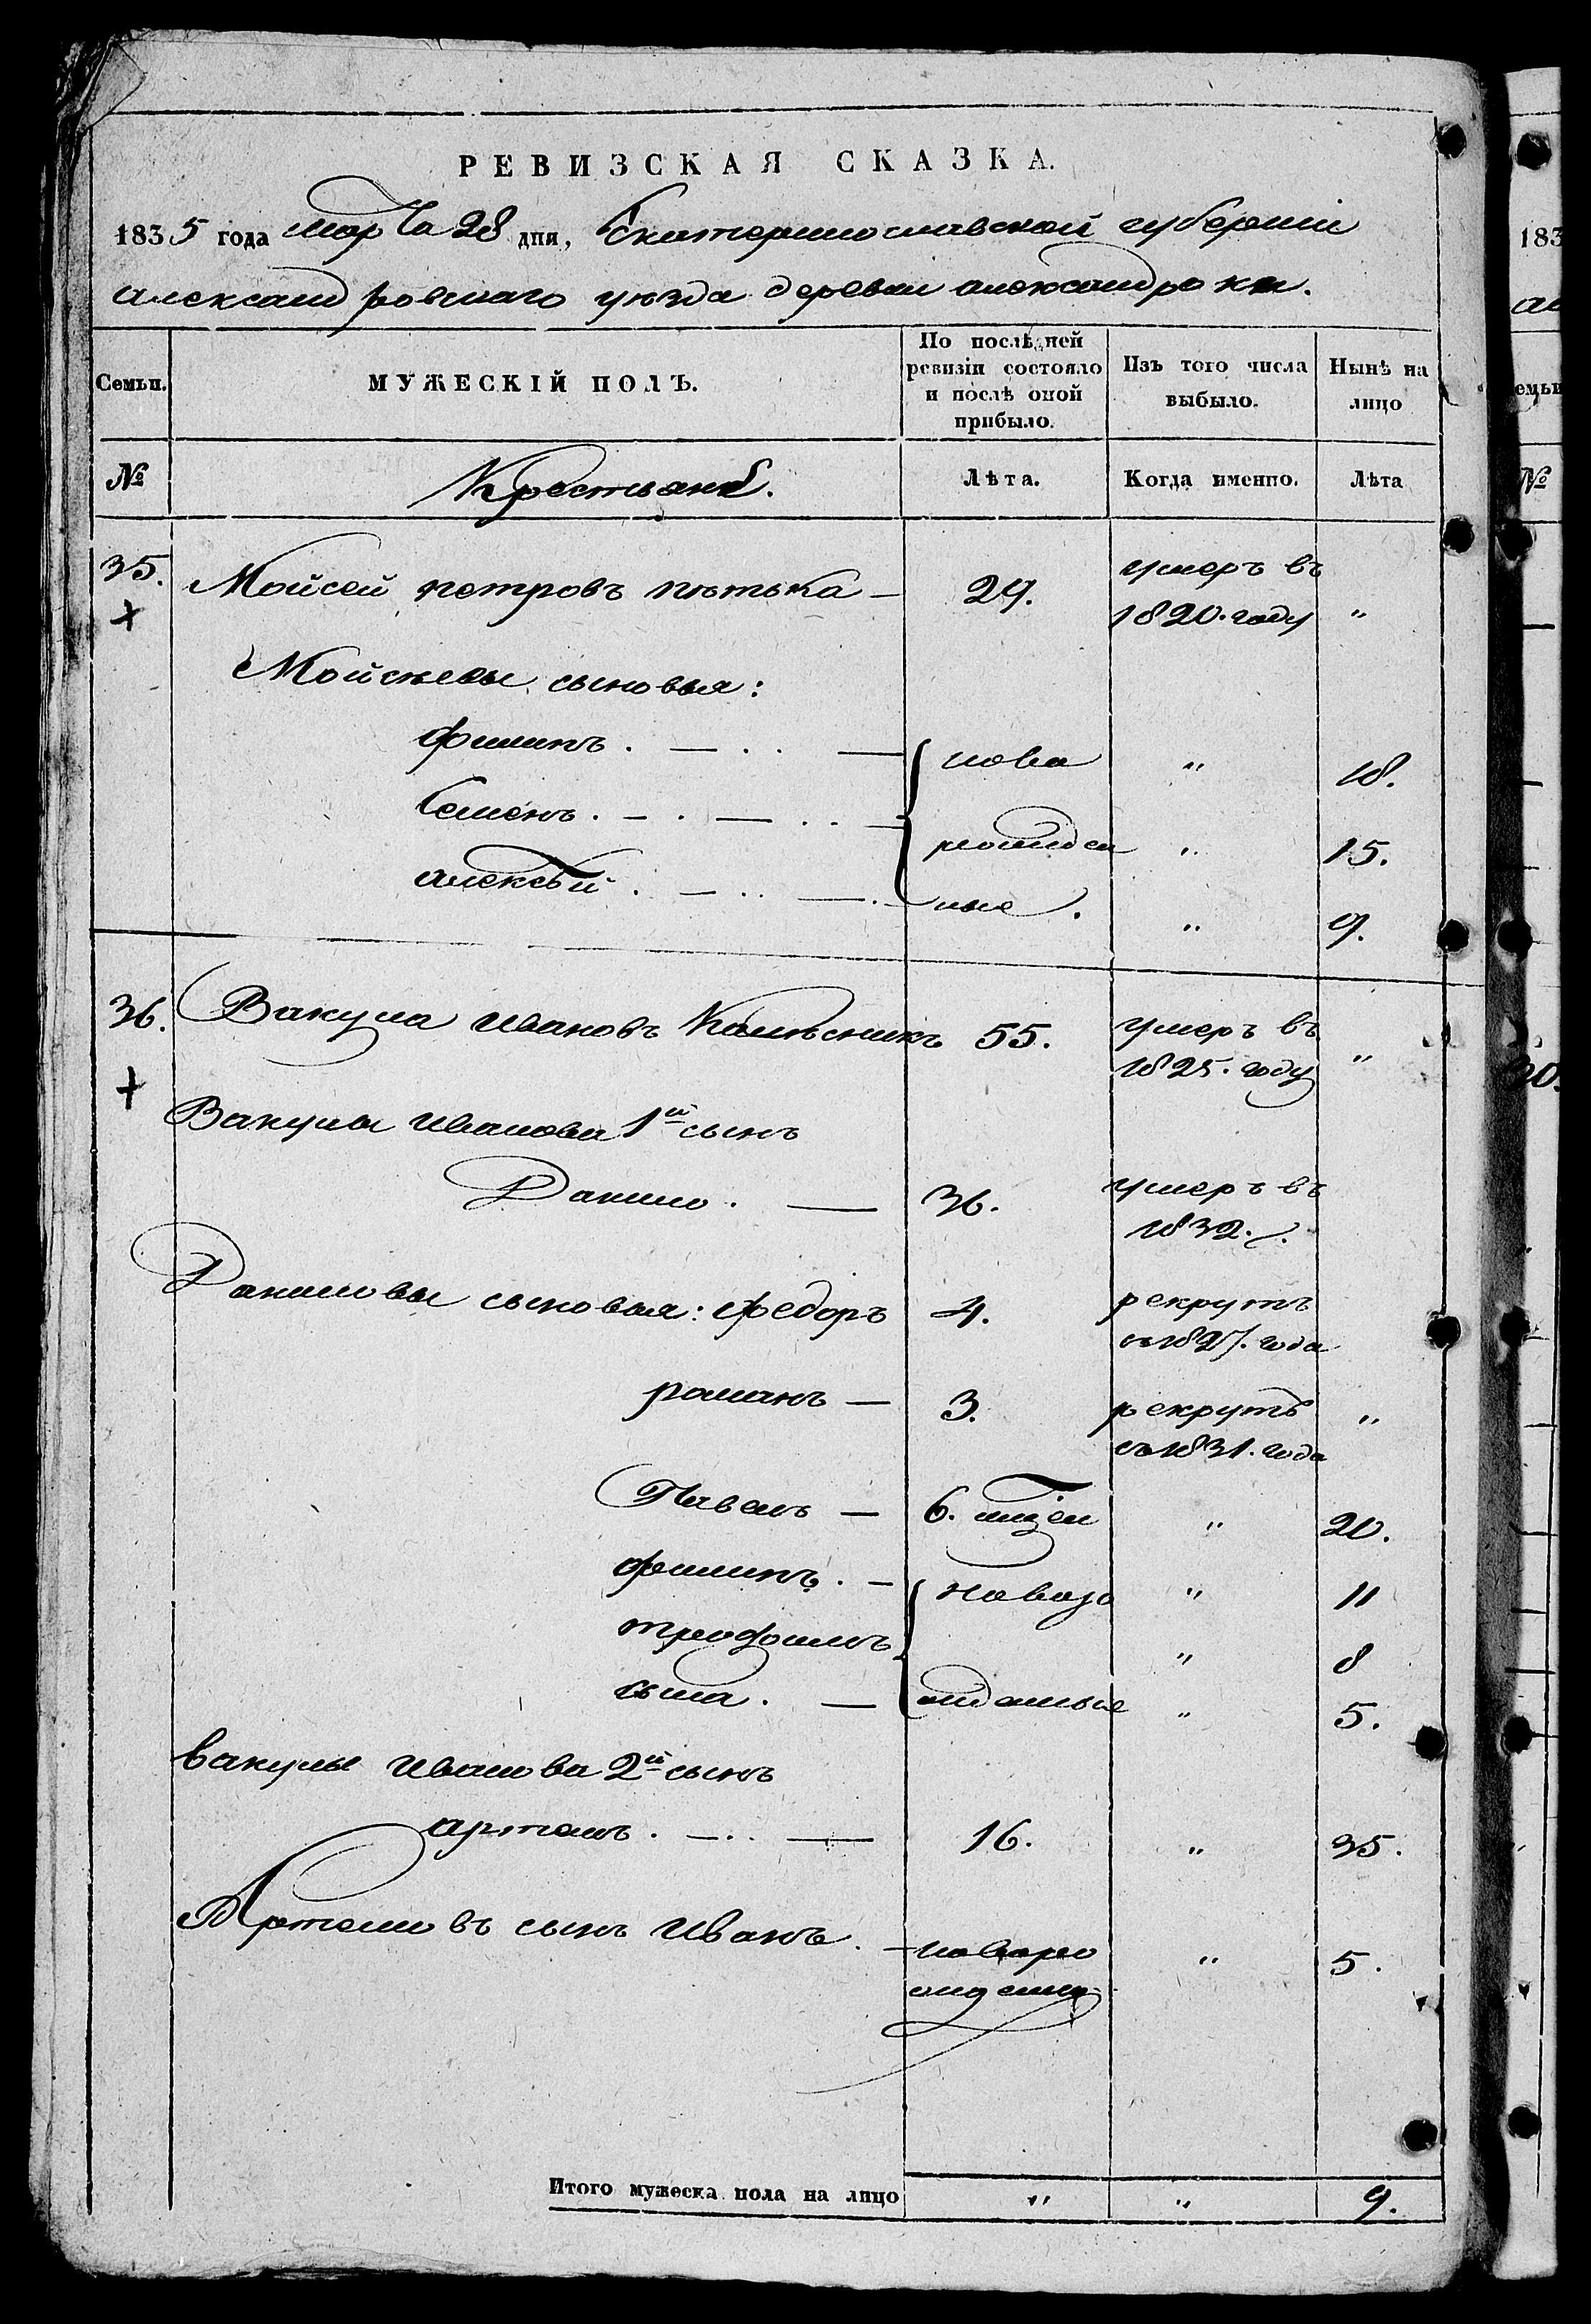 РЕВИЗСКАЯ СКАЗКА.
1835 года марта 28 дня, Екатеринославской губернiи
александровскаго уѣзда деревни александровки.
Семьи. МУЖЕСКІЙ ПОЛЪ. По послѣдней ревизіи состояло и послѣ оной прибыло. Изъ того числа выбыло. Нынѣ на лицо
№ Крестьянѣ. Лѣта. Когда именно. Лѣта
35. Мойсей петровъ пѣтька — 29. умеръ въ
1820. году "
Мойсѣевы сыновья:
филипъ. — . . — ново " 18.
Семенъ. — . — . . — рожден " 15.
алексѣй. — . . — . ные. " 9.
36. Вакула Ивановъ Колѣсникъ 55. умеръ въ
1825. году "
Вакулы Иванова 1й сынъ
Данило. — 36. умеръ въ
1832.
Даниловы сыновья: федоръ 4. рекрутъ
съ 1827. года
романъ — 3. рекрутъ "
съ 1831. года
Павелъ — 6. " 20.
филипъ. — новоро " 11
трофимъ " 8
сыла. — жденные " 5.
Вакулы Иванова 2й сынъ
артемъ. — . . — 16. " 35.
Артемовъ сынъ Иванъ. — новоро " 5.
жденны
Итого мужеска пола на лицо " " 9.